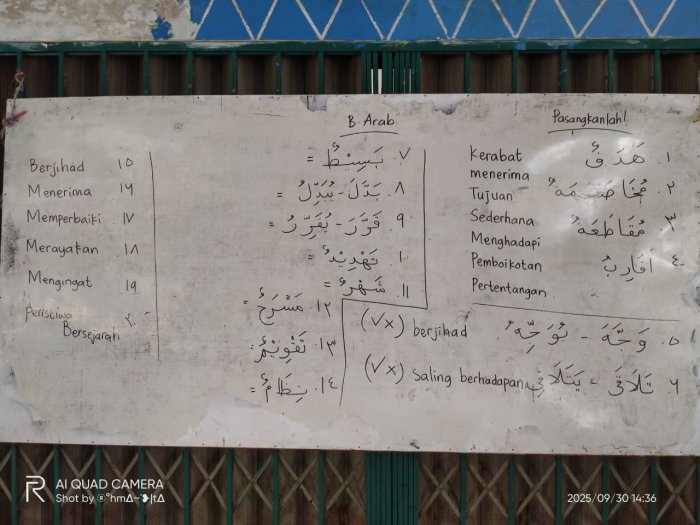 B. Arab
Pasangkanlah!
١. هَدَفٌ
٢. مُخَاصَمَةٌ
٣. مُقَاطَعَةٌ
٤. أَقَارِبُ
Kerabat
menerima
Tujuan
Sederhana
Menghadapi
Pemboikotan
Pertentangan
٥. وَجَّهَ - يُوَجِّهُ
(√ x) berjihad
٦. تَلَاقَى - يَتَلَاقَى
(√ x) saling berhadapan
٧. بَسِيْطٌ =
٨. بَدَّلَ - يُبَدِّلُ =
٩. قَرَّرَ - يُقَرِّرُ =
١٠. تَهْدِيْدٌ =
١١. شَهْرٌ =
١٢. مَسْرَحٌ =
١٣. تَقْوِيْمٌ:
١٤. نِظَامٌ =
Berjihad ١٥
Menerima ١٦
Memperbaiki ١٧
Merayakan ١٨
Mengingat ١٩
Peristiwa ٢٠
Bersejarah
AI QUAD CAMERA
Shot by
2025/09/30 14:36